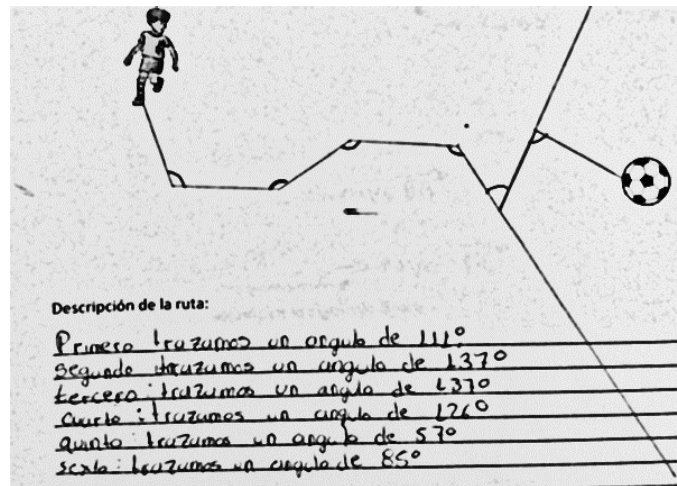 Descripción de la ruta:
Primero trazamos un angulo de 111º
segundo trazamos un angulo de 137º
tercero: trazamos un angulo de 137º
cuarto: trazamos un angulo de 126º
quinto trazamos un angulo de 57º
sexto: trazamos un angulo de 85º